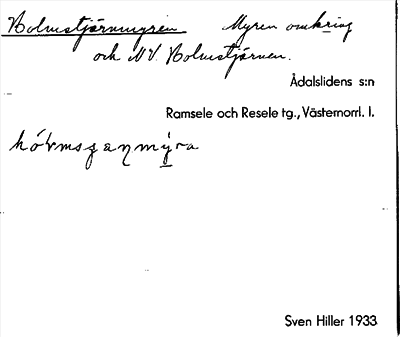 Holmstjärnmyren Myren omkring
och NV. Holmstjärnen.
Ådalslidens s:n
Ramsele och Resele tg., Västernorrl. l.
Sven Hiller 1933